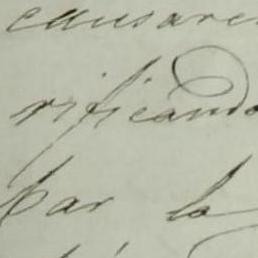 causare
rificando
bar la